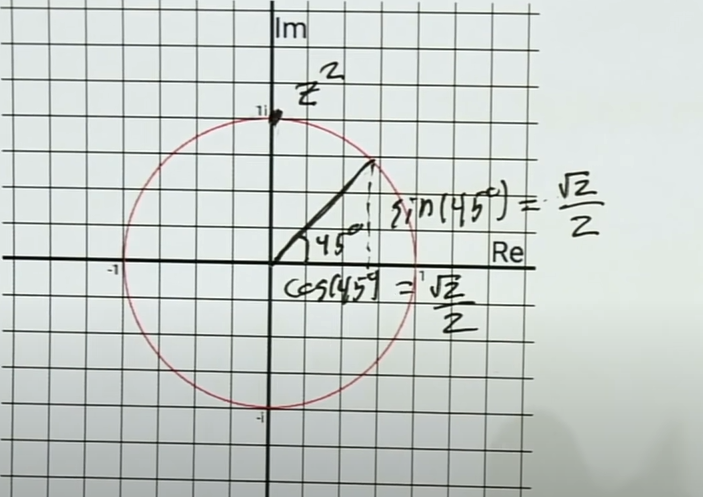 Im
z²
1i
sin(45°) = √2/2
45°
Re
-1
1
cos(45°) = √2/2
-i